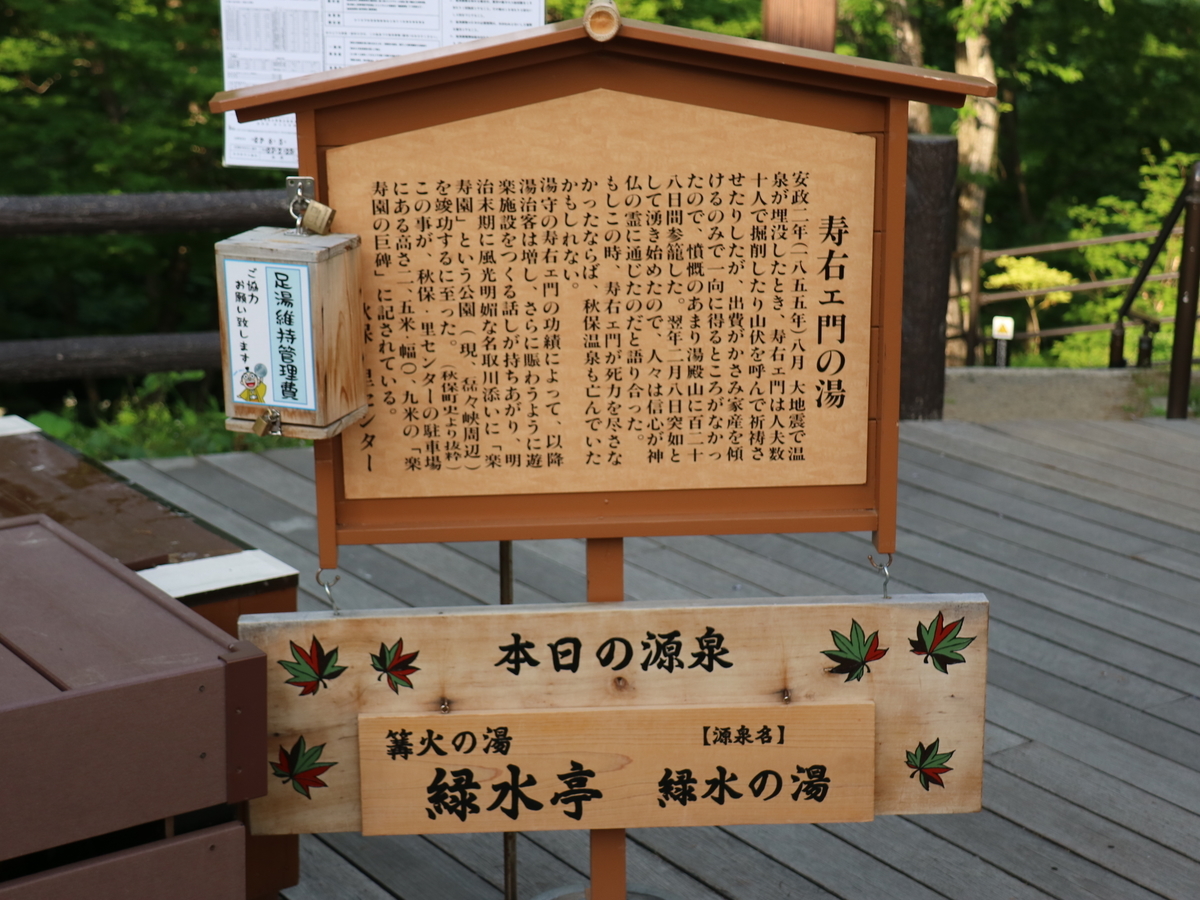 寿右ェ門の湯
安政二年(一八五五年)八月 大地震で温
泉が埋没したとき、寿右ェ門は人夫数
十人で掘削したり山伏を呼んで祈祷さ
せたりしたが、出費がかさみ家産を傾
けるのみで一向に得るところがなかっ
たので、憤慨のあまり湯殿山に百二十
八日間参籠した。翌年二月八日突如と
して湧き始めたので、人々は信心が神
仏の霊に通じたのだと語り合った。
もしこの時、寿右ェ門が死力を尽さな
かったならば、秋保温泉も亡んでいた
かもしれない。
湯守の寿右ェ門の功績によって、以降
湯治客は増し、さらに賑わうように遊
楽施設をつくる話しが持ちあがり、明
治末期に風光明媚な名取川添いに「楽
寿園」という公園(現、磊々峡周辺)
を竣功するに至った。(秋保町史より抜粋)
この事が、秋保・里センターの駐車場
にある高さ二、五米・幅〇、九米の「楽
寿園の巨碑」に記されている。
秋保・里センター
足湯維持管理費
ご協力
お願い致します
本日の源泉
篝火の湯
緑水亭
【源泉名】
緑水の湯